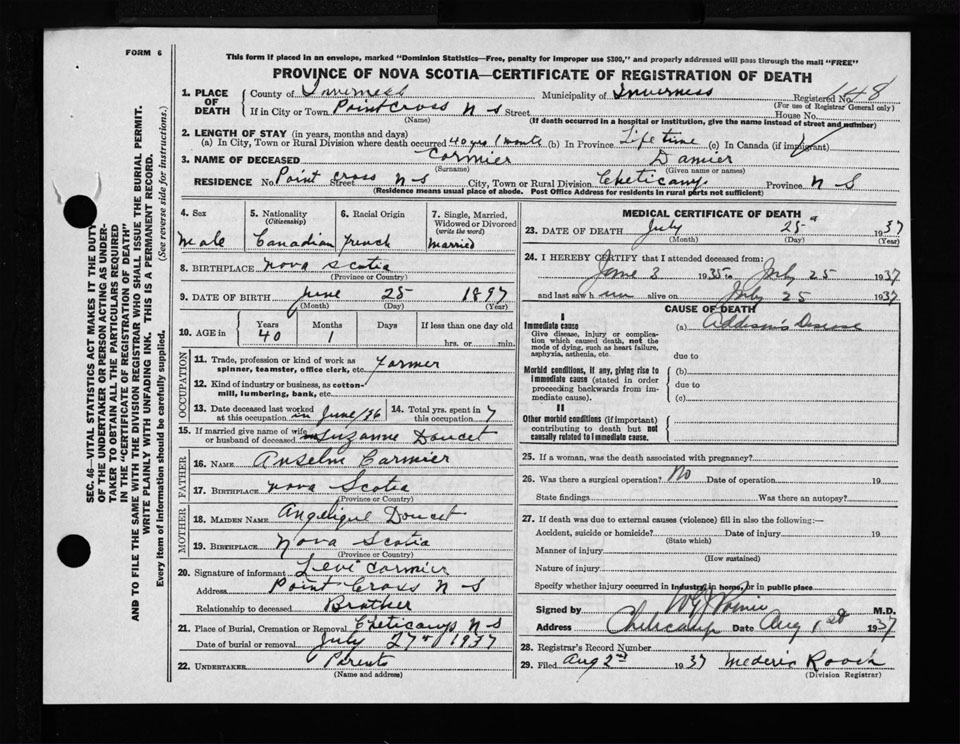 FORM 6
This form if placed in an envelope, marked "Dominion Statistics—Free, penalty for improper use $300," and properly addressed will pass through the mail "FREE"
PROVINCE OF NOVA SCOTIA—CERTIFICATE OF REGISTRATION OF DEATH
1. PLACE OF DEATH County of Inverness Municipality of Inverness Registered No. 148
(For use of Registrar General only)
If in City or Town Point Cross N S Street House No.
(Name) (If death occurred in a hospital or institution, give the name instead of street and number)
2. LENGTH OF STAY (in years, months and days)
(a) In City, Town or Rural Division where death occurred 40 yrs 1 month (b) In Province Life time (c) In Canada (if immigrant)
3. NAME OF DECEASED Cormier Damier
(Surname) (Given name or names)
RESIDENCE No. Point Cross Street N S City, Town or Rural Division Cheticamp Province N S
(Residence means usual place of abode. Post Office Address for Residents in rural parts not sufficient)
SEC. 46—VITAL STATISTICS ACT MAKES IT THE DUTY
OF THE UNDERTAKER OR PERSON ACTING AS UNDER-
TAKER TO OBTAIN ALL THE PARTICULARS REQUIRED
IN THE "CERTIFICATE OF REGISTRATION OF DEATH"
AND TO FILE THE SAME WITH THE DIVISION REGISTRAR WHO SHALL ISSUE THE BURIAL PERMIT.
WRITE PLAINLY WITH UNFADING INK. THIS IS A PERMANENT RECORD.
Every item of information should be carefully supplied. (See reverse side for instructions.)
4. Sex 5. Nationality (Citizenship) 6. Racial Origin 7. Single, Married, Widowed or Divorced (write the word)
Male Canadian French Married
8. BIRTHPLACE Nova Scotia
(Province or Country)
9. DATE OF BIRTH June 25 1897
(Month) (Day) (Year)
10. AGE in Years Months Days If less than one day old
40 1 hrs. or min.
OCCUPATION
11. Trade, profession or kind of work as spinner, teamster, office clerk, etc. Farmer
12. Kind of industry or business, as cotton-mill, lumbering, bank, etc.
13. Date deceased last worked at this occupation in June/36 14. Total yrs. spent in this occupation 7
15. If married give name of wife or husband of deceased Suzanne Doucet
FATHER
16. NAME Anselm Cormier
17. BIRTHPLACE Nova Scotia
(Province or Country)
MOTHER
18. MAIDEN NAME Angelique Doucet
19. BIRTHPLACE Nova Scotia
(Province or Country)
20. Signature of informant Levi Cormier
Address Point Cross N S
Relationship to deceased Brother
21. Place of Burial, Cremation or Removal Cheticamp N S
Date of burial or removal July 27 1937
22. UNDERTAKER Parents
(Name and address)
MEDICAL CERTIFICATE OF DEATH
23. DATE OF DEATH July 25 1937
(Month) (Day) (Year)
24. I HEREBY CERTIFY that I attended deceased from:
June 3 1935 to July 25 1937
and last saw h im alive on July 25 1937
CAUSE OF DEATH
I
Immediate cause (a) Addison's Disease
Give disease, injury or complication which caused death, not the mode of dying, such as heart failure, asphyxia, asthenia, etc.
due to
Morbid conditions, if any, giving rise to immediate cause (stated in order proceeding backwards from immediate cause). (b)
due to
(c)
II
Other morbid conditions (if important) contributing to death but not causally related to immediate cause.
25. If a woman, was the death associated with pregnancy?
26. Was there a surgical operation? No Date of operation 19
State findings Was there an autopsy?
27. If death was due to external causes (violence) fill in also the following:—
Accident, suicide or homicide? Date of injury 19
(State which)
Manner of injury
(How sustained)
Nature of injury
Specify whether injury occurred in industry, in home, or in public place
Signed by M.D.
Address Cheticamp Date Aug 1st 1937
28. Registrar's Record Number
29. Filed Aug 2nd 1937 Mederic Roach
(Division Registrar)